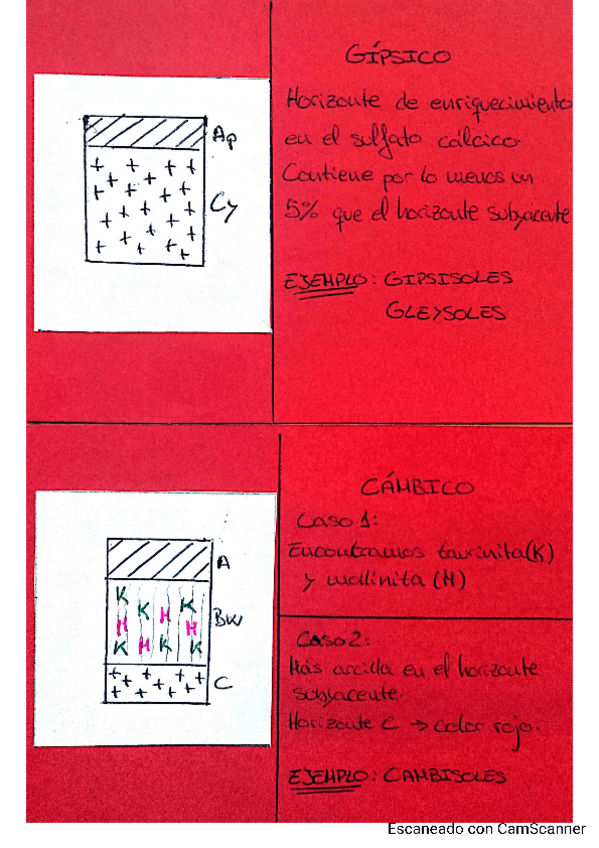 GÍPSICO
Horizonte de enriquecimiento
en el sulfato cálcico.
Contiene por lo menos un
5% que el horizonte subyacente
EJEMPLO: GIPSISOLES
GLEYSOLES
Ap
Cy
CÁMBICO
Caso 1:
Encontramos taurinita (K)
y mollinita (M)
Caso 2:
Más arcilla en el horizonte
subyacente.
Horizonte C → color rojo.
EJEMPLO: CAMBISOLES
A
Bw
C
K K
K
M M M
K M K
Escaneado con CamScanner